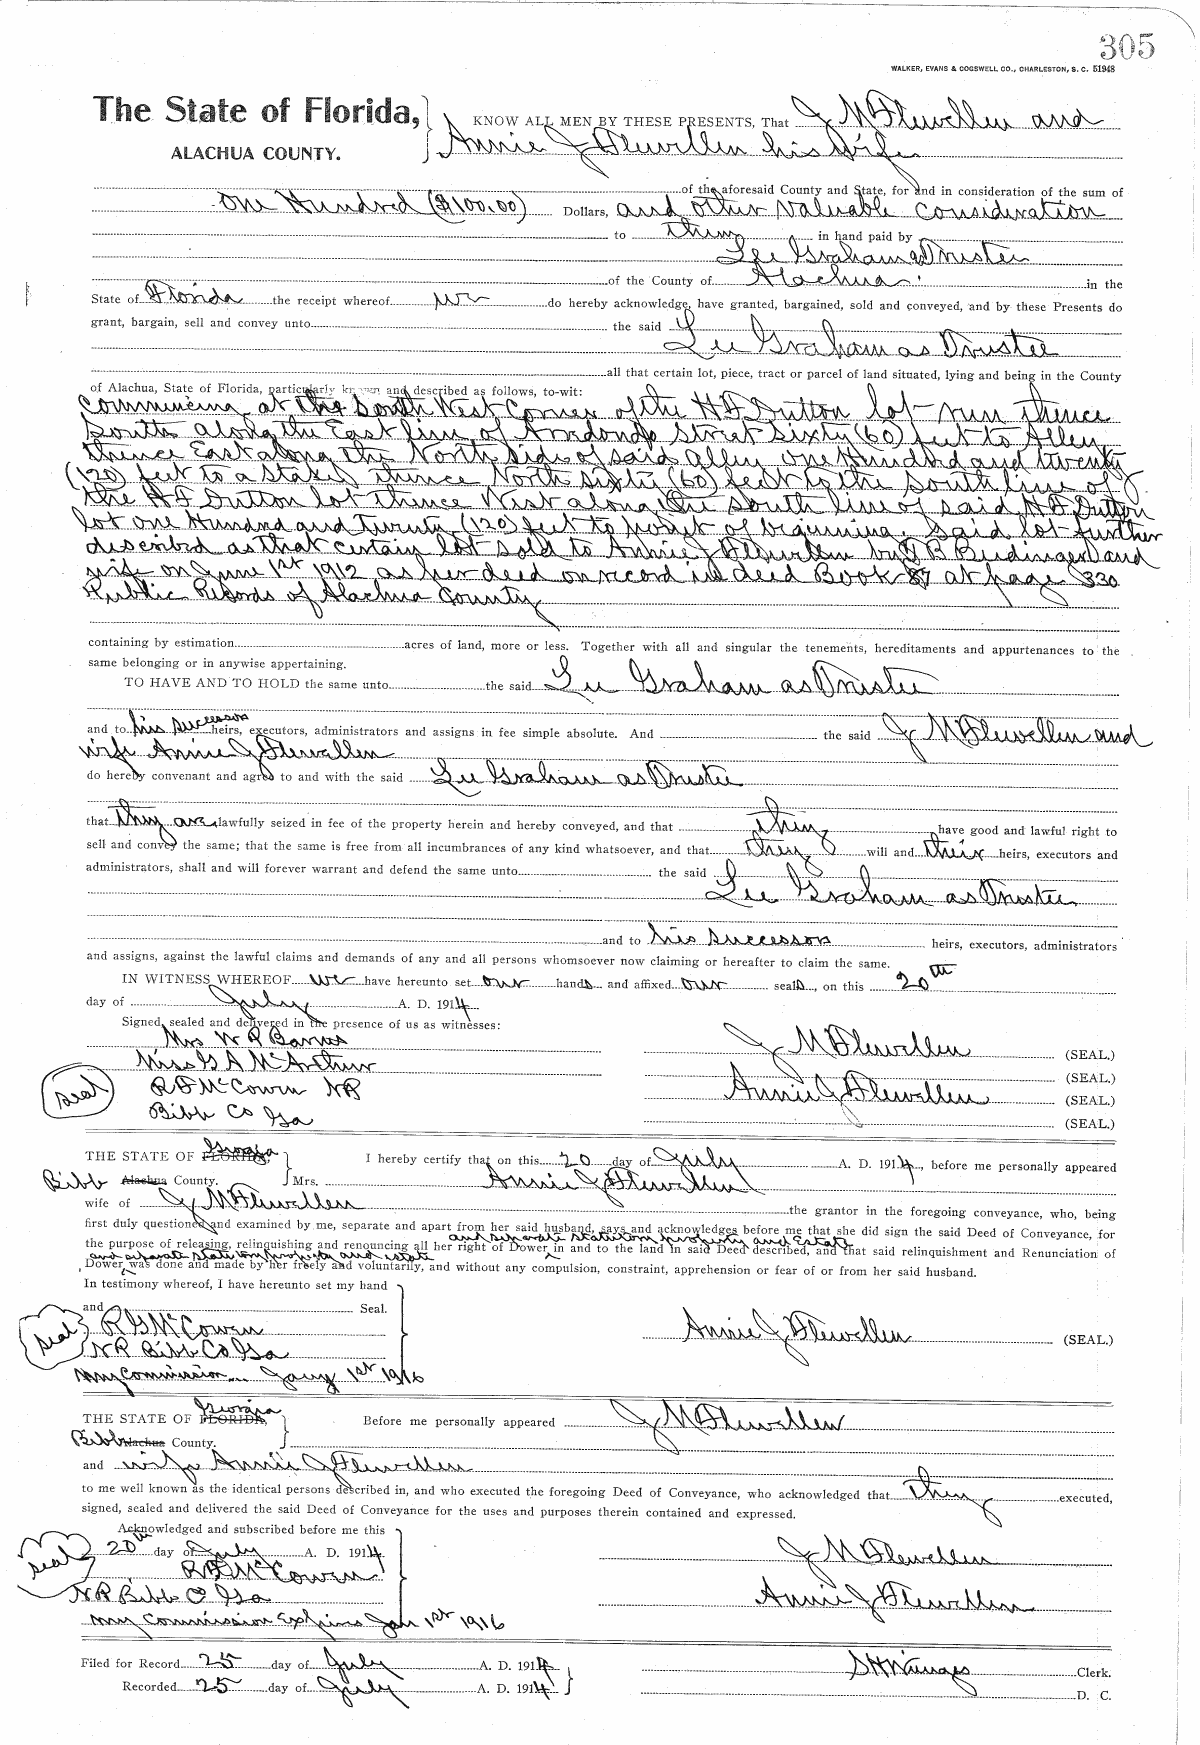 305
WALKER, EVANS & COGSWELL CO., CHARLESTON, S. C. 51948
The State of Florida,
ALACHUA COUNTY.
KNOW ALL MEN BY THESE PRESENTS, That J M Flewellen and
Annie J Flewellen his wife
of the aforesaid County and State, for and in consideration of the sum of
One Hundred ($100.00) Dollars, and other valuable consideration
to them in hand paid by
Lee Graham as Trustee
of the County of Alachua in the
State of Florida the receipt whereof we do hereby acknowledge, have granted, bargained, sold and conveyed, and by these Presents do
grant, bargain, sell and convey unto the said
Lee Graham as Trustee
all that certain lot, piece, tract or parcel of land situated, lying and being in the County
of Alachua, State of Florida, particularly known and described as follows, to-wit:
Commencing at the South West Corner of the H F Dutton lot run thence
South along the East line of Arredondo Street Sixty (60) feet to Alley
thence East along the North Side of said alley one Hundred and twenty
(120) feet to a stake thence North sixty (60) feet to the south line of
the H F Dutton lot thence West along the south line of said H F Dutton
lot one Hundred and Twenty (120) feet to point of beginning, said lot further
described as that certain lot sold to Annie J Flewellen by B Beidinger and
wife on June 1st 1912 as her deed on record in deed Book 87 at page 330
Public Records of Alachua County
containing by estimation acres of land, more or less. Together with all and singular the tenements, hereditaments and appurtenances to the
same belonging or in anywise appertaining.
TO HAVE AND TO HOLD the same unto the said Lee Graham as Trustee
and to his successors heirs, executors, administrators and assigns in fee simple absolute. And the said J M Flewellen and
wife Annie J Flewellen
do hereby convenant and agree to and with the said Lee Graham as Trustee
that they are lawfully seized in fee of the property herein and hereby conveyed, and that they have good and lawful right to
sell and convey the same; that the same is free from all incumbrances of any kind whatsoever, and that they will and their heirs, executors and
administrators, shall and will forever warrant and defend the same unto the said
Lee Graham as Trustee
and to his successors heirs, executors, administrators
and assigns, against the lawful claims and demands of any and all persons whomsoever now claiming or hereafter to claim the same.
IN WITNESS WHEREOF we have hereunto set our hands and affixed our seals, on this 20th
day of July A. D. 1914
Signed, sealed and delivered in the presence of us as witnesses:
Mrs W R Barnes
Miss G A McArthur
seal R F McCowen NP
Bibb Co Ga
J M Flewellen (SEAL.)
(SEAL.)
Annie J Flewellen (SEAL.)
(SEAL.)
THE STATE OF FLORIDA, Georgia
Bibb Alachua County.
I hereby certify that on this 20 day of July A. D. 1914, before me personally appeared
Mrs. Annie J Flewellen
wife of J M Flewellen the grantor in the foregoing conveyance, who, being
first duly questioned and examined by me, separate and apart from her said husband, says and acknowledges before me that she did sign the said Deed of Conveyance, for
and separate statutory property and Estate
the purpose of releasing, relinquishing and renouncing all her right of Dower in and to the land in said Deed described, and that said relinquishment and Renunciation of
and separate statutory property and estate
Dower was done and made by her freely and voluntarily, and without any compulsion, constraint, apprehension or fear of or from her said husband.
In testimony whereof, I have hereunto set my hand
and Seal.
seal R F McCowen
NP Bibb Co Ga
My Commission Jany 1st 1916
Annie J Flewellen (SEAL.)
THE STATE OF FLORIDA, Georgia
Bibb Alachua County.
Before me personally appeared J M Flewellen
and wife Annie J Flewellen
to me well known as the identical persons described in, and who executed the foregoing Deed of Conveyance, who acknowledged that they executed,
signed, sealed and delivered the said Deed of Conveyance for the uses and purposes therein contained and expressed.
Acknowledged and subscribed before me this
seal 20th day of July A. D. 1914
R F McCowen
NP Bibb Co Ga
My Commission Expires Jan 1st 1916
J M Flewellen
Annie J Flewellen
Filed for Record 25 day of July A. D. 1914
Recorded 25 day of July A. D. 1914
S H Wienges Clerk.
D. C.